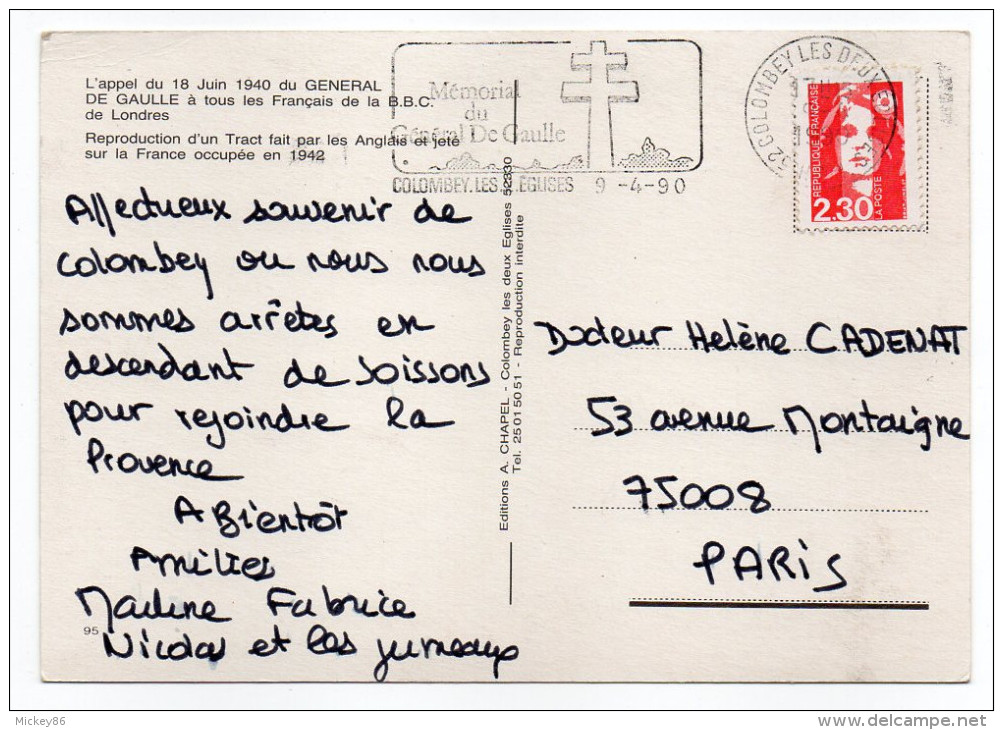 L'appel du 18 Juin 1940 du GENERAL
DE GAULLE à tous les Français de la B.B.C.
de Londres
Reproduction d'un Tract fait par les Anglais et jeté
sur la France occupée en 1942
Mémorial
du
Général De Gaulle
COLOMBEY.LES.2.EGLISES 9 -4-90
52 COLOMBEY LES DEUX
REPUBLIQUE FRANÇAISE
2,30
LA POSTE
Affectueux souvenir de
colombey ou nous nous
sommes arrêtes en
descendant de Soissons
pour rejoindre la
Provence
A Bientôt
Amitiés
Fabrice
Nicolas et les jumeaux
95
Editions A. CHAPEL - Colombey les deux Eglises 52330
Tel. 25 01 50 51 - Reproduction interdite
Docteur Helène CADENAT
53 avenue Montaigne
75008
PARIS
Mickey86
delcampe.net